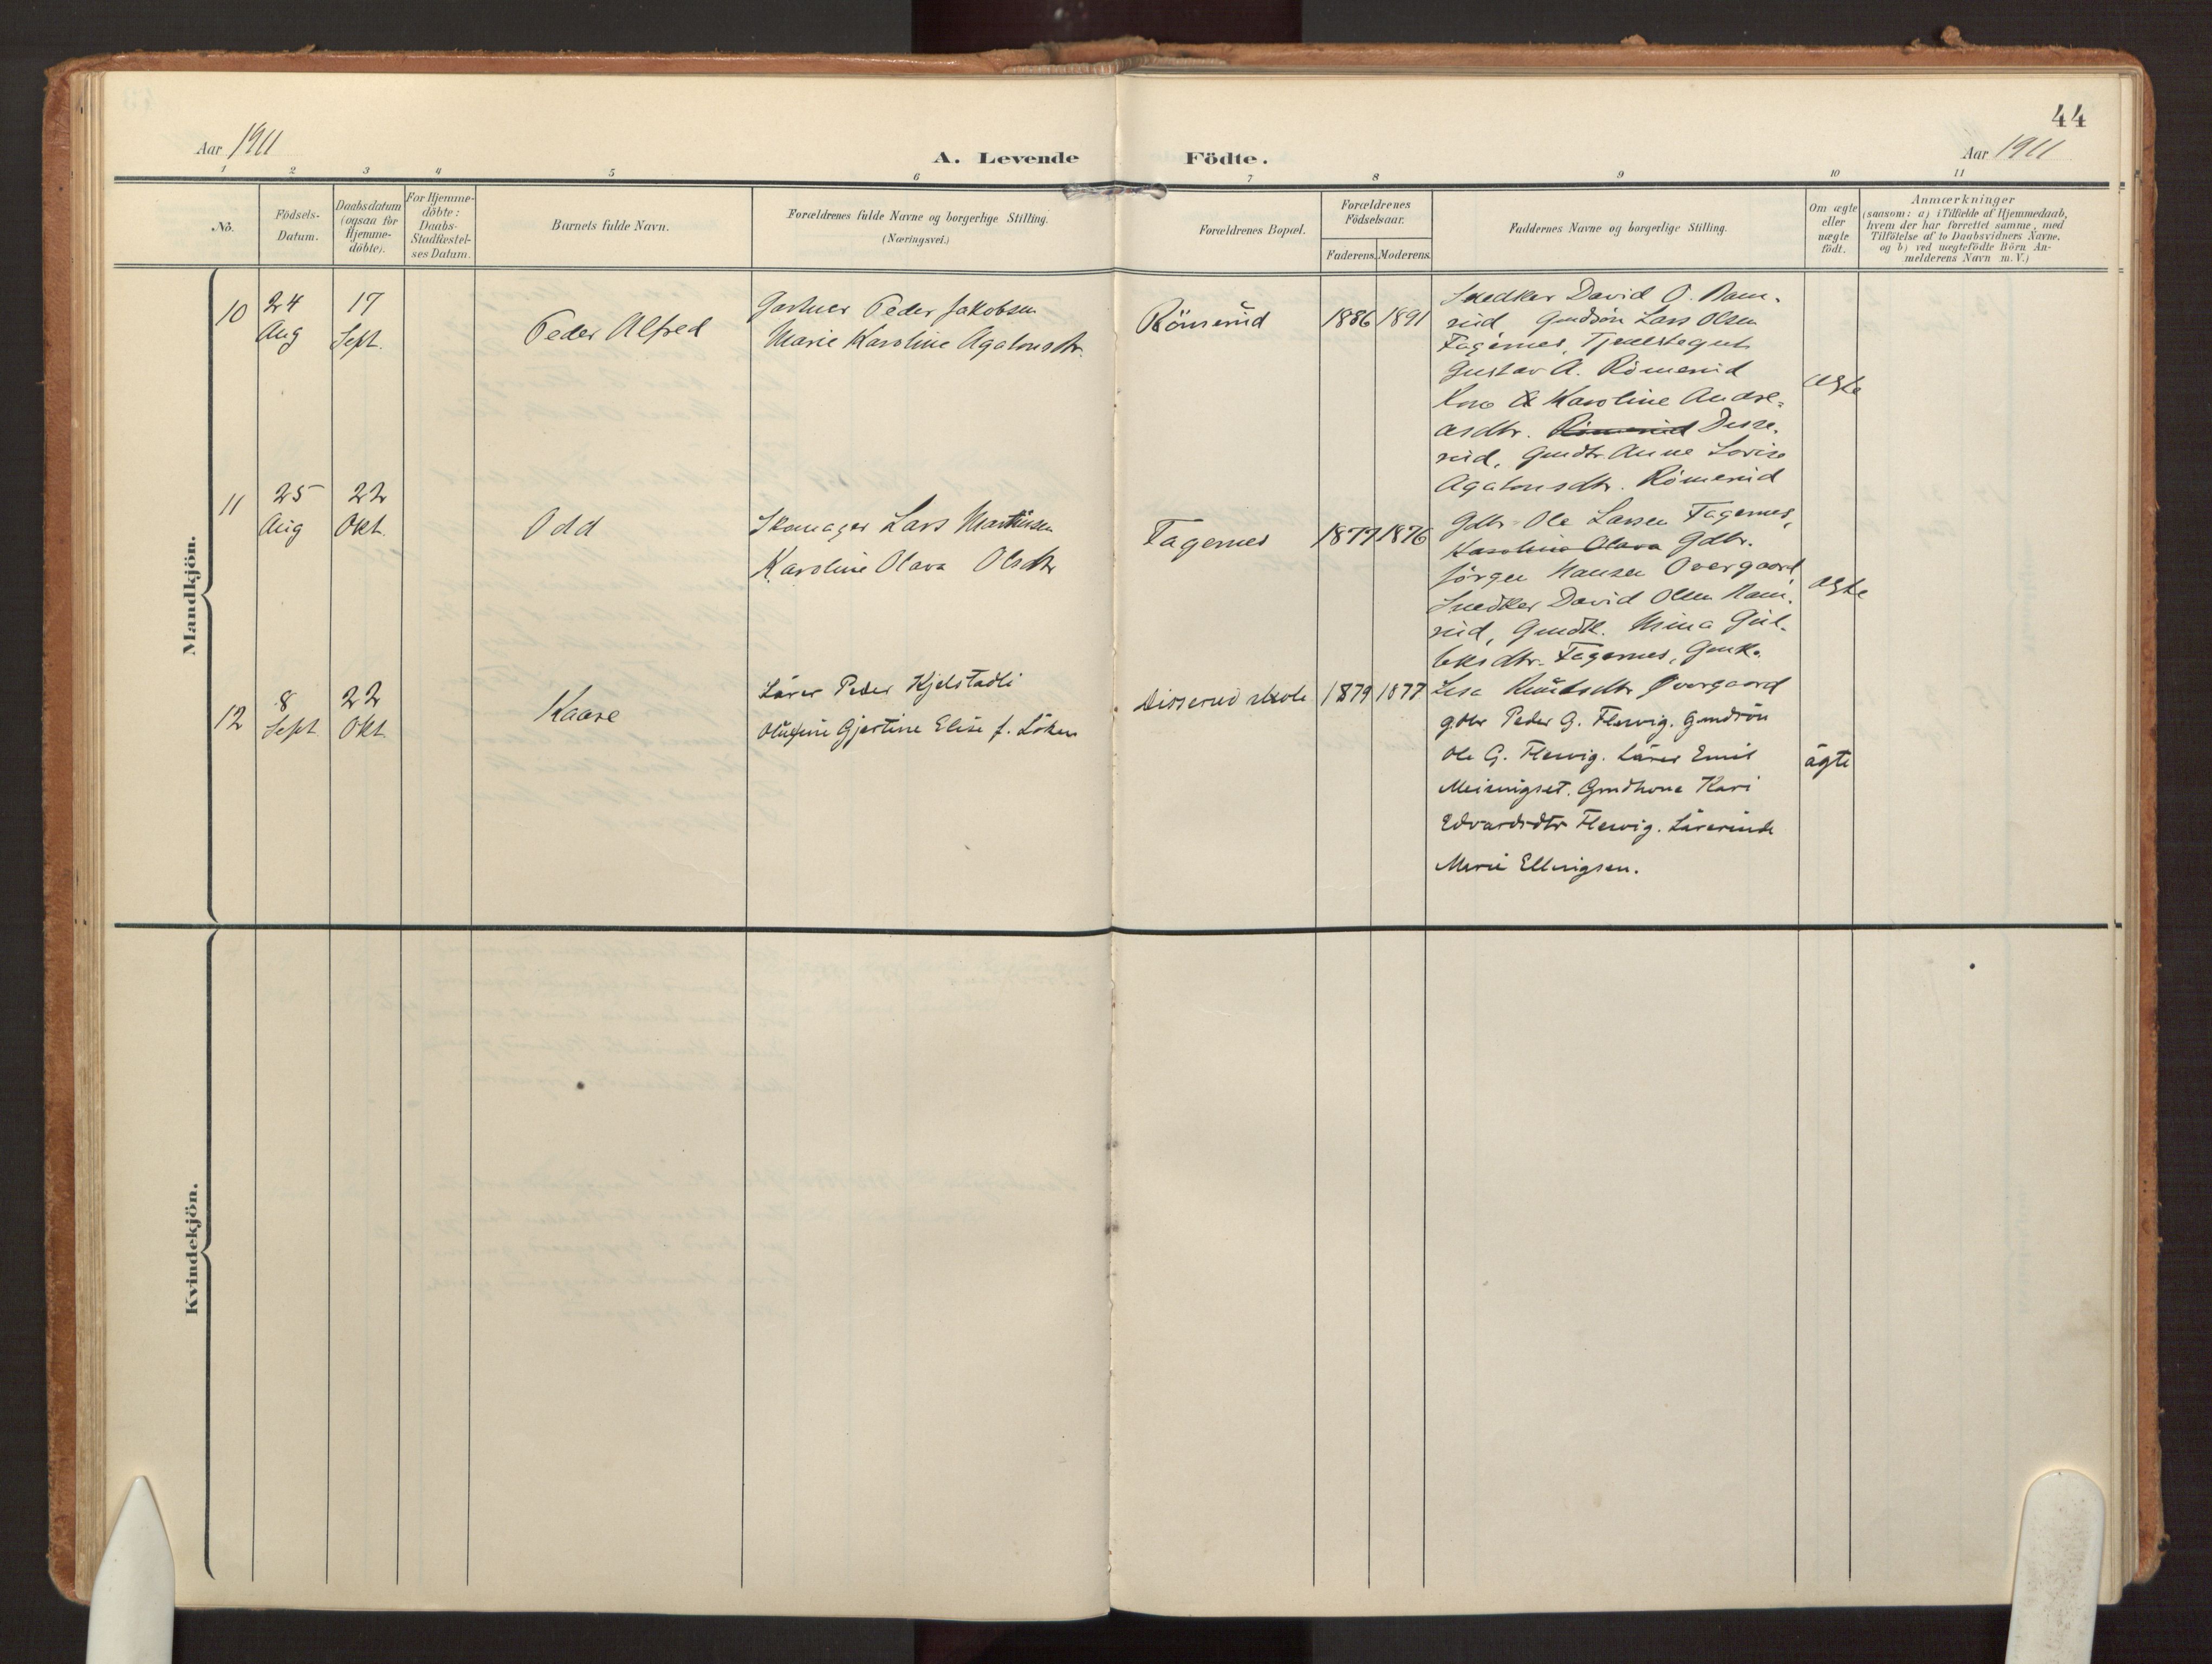 44
Aar 1911
A. Levende Födte.
Aar 1911
1 2 3 4 5 6 7 8 9 10 11
No.
Födsels-Datum.
Daabsdatum (ogsaa for Hjemme-döbte).
For Hjemme-döbte: Daabs-Stadfæstel-ses Datum.
Barnets fulde Navn.
Forældrenes fulde Navne og borgerlige Stilling.
(Næringsvei.)
Forældrenes Bopæl.
Forældrenes Födselsaar.
Faderens. Moderens.
Faddernes Navne og borgerlige Stilling.
Om ægte eller uægte födt.
Anmærkninger
(saasom: a) i Tilfælde af Hjemmedaab,
hvem der har forrettet samme, med
Tilföielse af to Daabsvidners Navne,
og b) ved uægtefödte Börn An-
melderens Navn m.V.)
Mandkjön.
10
24 Aug
17 Sept.
Peder Alfred
Gartner Peder Jakobsen
Marie Karoline Agatonsdtr.
Römerud
1886 1891
Snedker David O. Ram-
rud, Gmdsön Lars Olsen
Fagernes, Tjenestegut
Gustav A. Römerud
Kone Karoline Andre-
asdtr. Römerud Disse-
rud, Gmdtr. Anne Lovise
Agatonsdtr. Römerud
ægte
11
25 Aug
22 Okt.
Odd
Skomager Lars Martinsen
Karoline Olava Olsdtr
Fagernes
1877 1876
Gdbr. Ole Larsen Fagernes,
Karoline Olava Gdbr.
Jörgen Hansen Overgaard,
Snedker David Olsen Ram-
rud, Gmdtr. Mina Gul-
beksdtr. Fagernes, Gmk.
Lisa Knudsdtr Övergaard
ægte
12
8 Sept
22 Okt.
Kaare
Lärer Peder Kjelstadli
Olufine Gjertine Elise f. Löken
Disserud skole
1879 1877
gdbr Peder G. Flesvig. Gmdsön
Ole G. Flesvig. Lärer Emil
Meisingset. Gmdkone Kari
Edvardsdtr Flesvig. Lärerinde
Marie Ellingsen.
ägte
Kvindekjön.